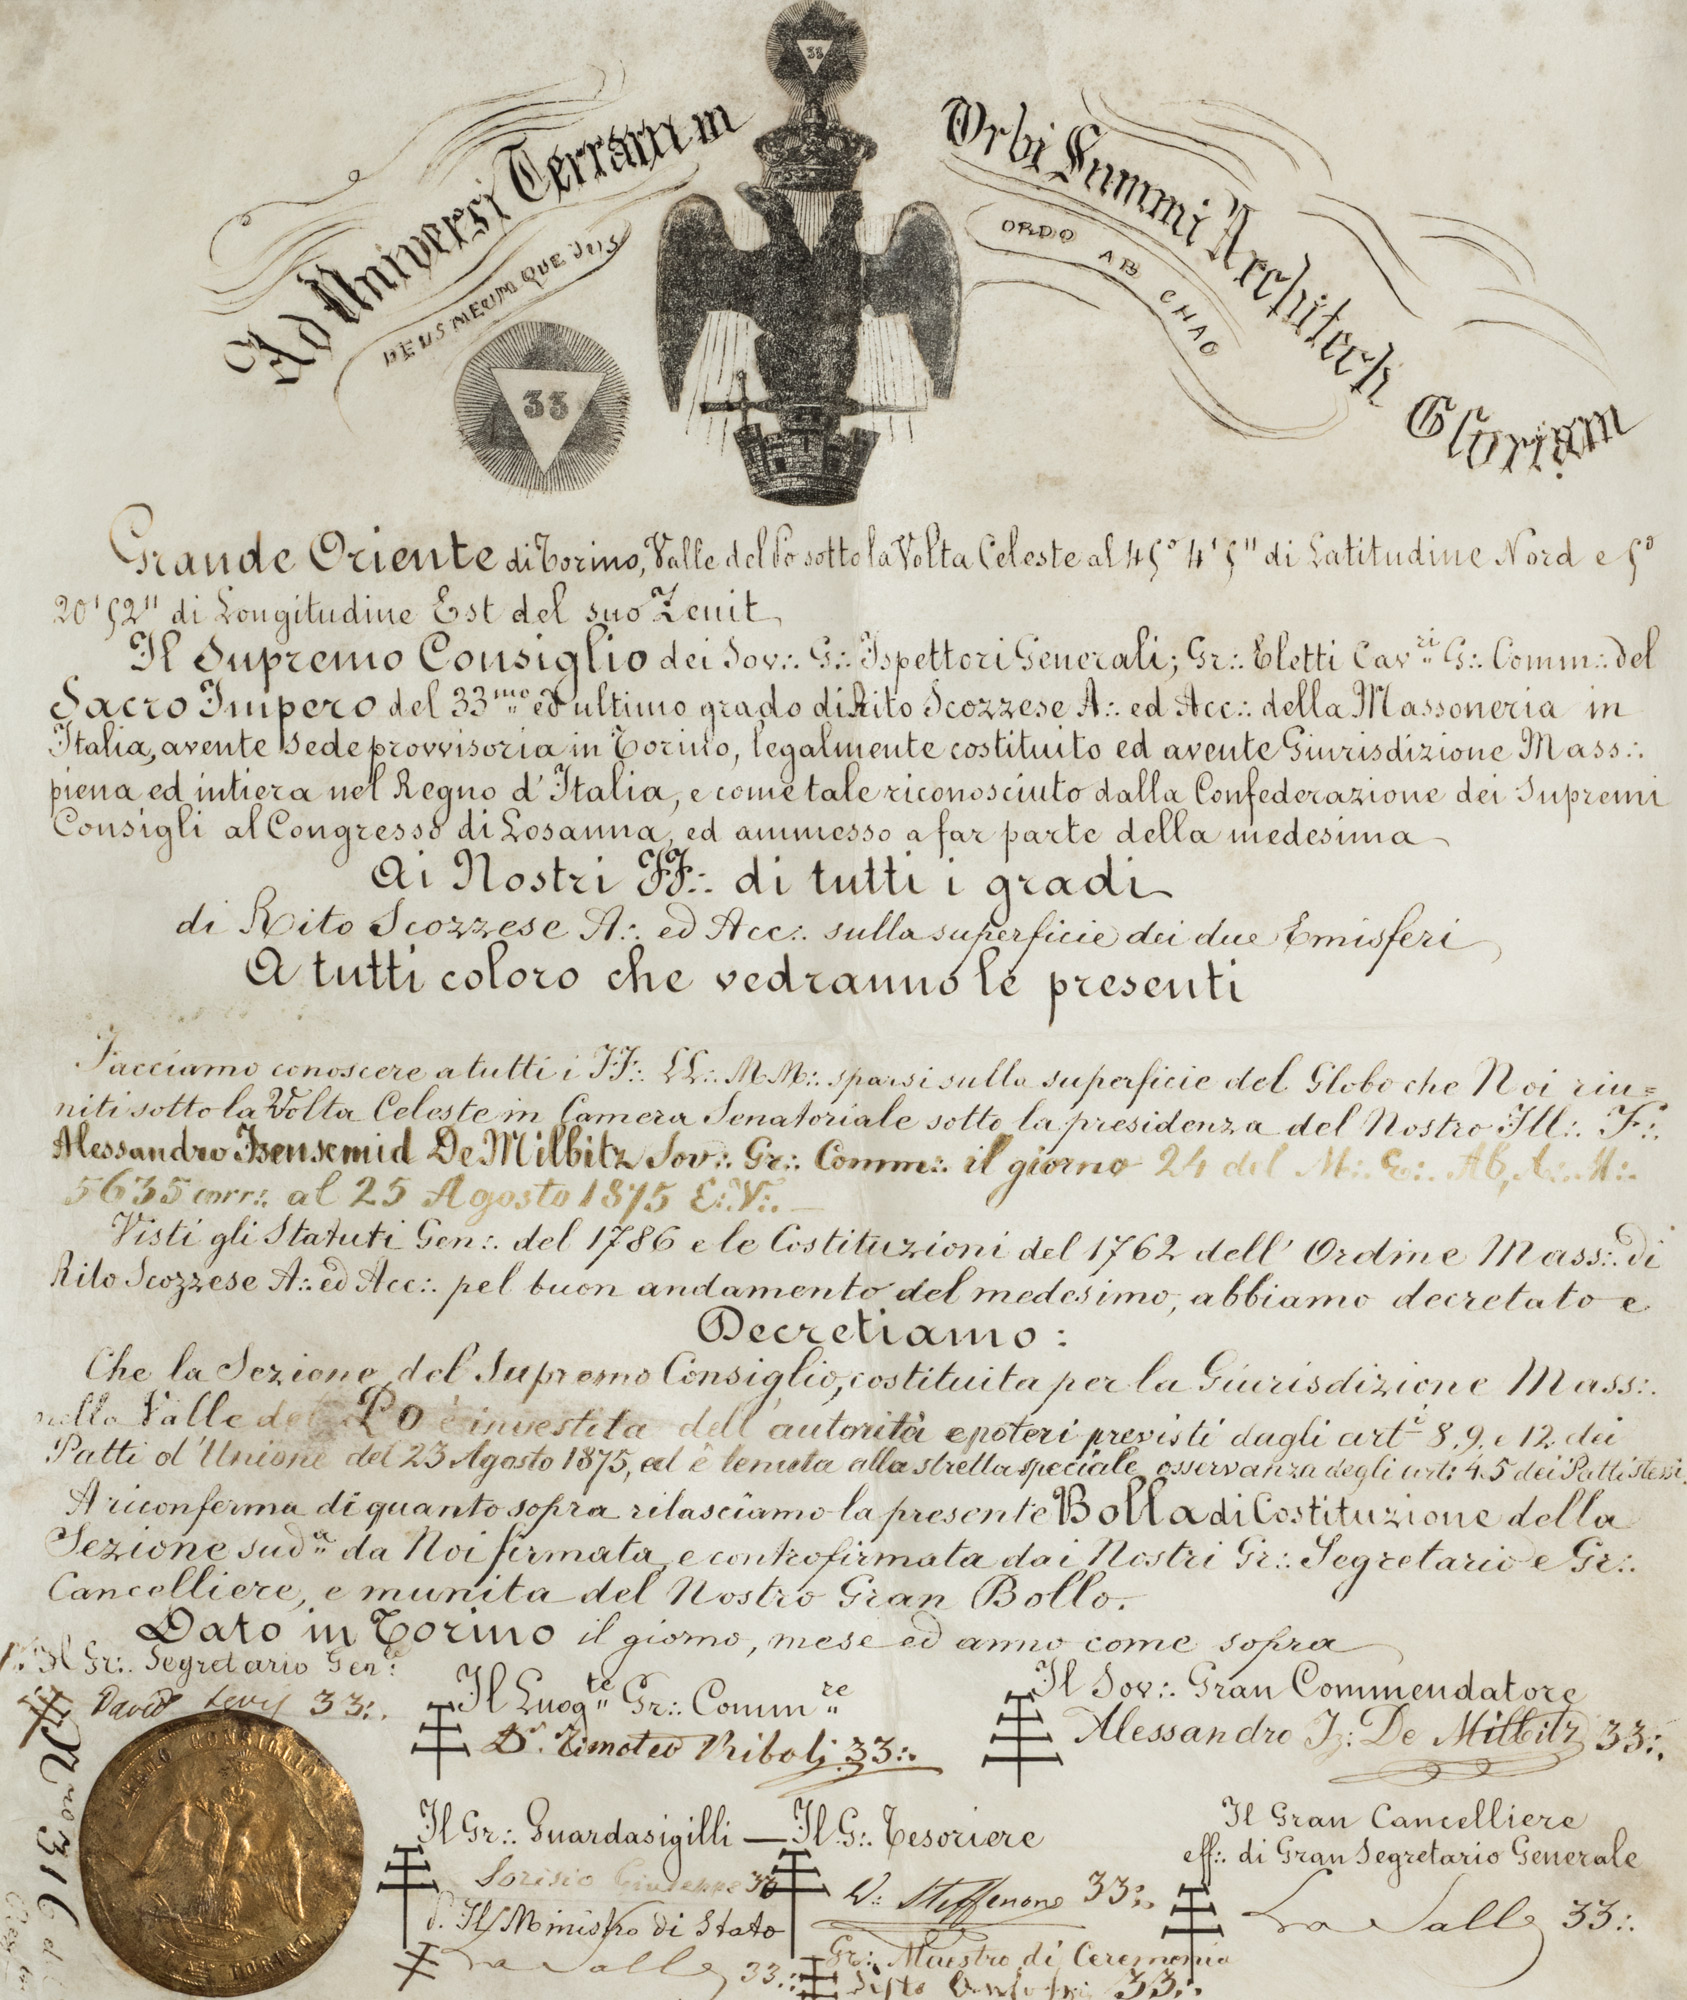 33
Ad Universi Terrarum
Orbi Summi Architecti Gloriam
DEUS MEUM QUE JUS
ORDO AB CHAO
33
Grande Oriente di Torino, Valle del Po sotto la Volta Celeste al 45° 4' 5" di Latitudine Nord e 5°
20' 52" di Longitudine Est del suo Zenit
Il Supremo Consiglio dei Sov∴ G∴ Ispettori Generali; Gr∴ Eletti Cav.ri G∴ Comm∴ del
Sacro Impero del 33mo ed ultimo grado di Rito Scozzese A∴ ed Acc∴ della Massoneria in
Italia, avente sede provvisoria in Torino, legalmente costituito ed avente Giurisdizione Mass∴
piena ed intiera nel Regno d'Italia, e come tale riconosciuto dalla Confederazione dei Supremi
Consigli al Congresso di Losanna, ed ammesso a far parte della medesima
Ai Nostri FF∴ di tutti i gradi
di Rito Scozzese A∴ ed Acc∴ sulla superficie dei due Emisferi
A tutti coloro che vedranno le presenti
Facciamo conoscere a tutti i FF∴ LL∴ MM∴ sparsi sulla superficie del Globo che Noi riu=
niti sotto la Volta Celeste in Camera Senatoriale sotto la presidenza del Nostro Ill∴ F∴
Alessandro Isensemid De Milbitz Sov∴ Gr∴ Comm∴ il giorno 24 del M∴ E∴ Ab, A∴ M∴
5635 corr∴ al 25 Agosto 1875 E∴V∴
Visti gli Statuti Gen∴ del 1786 e le Costituzioni del 1762 dell' Ordine Mass∴ di
Rito Scozzese A∴ ed Acc∴ pel buon andamento del medesimo, abbiamo decretato e
Decretiamo:
Che la Sezione del Supremo Consiglio, costituita per la Giurisdizione Mass∴
nella Valle del Po è investita dell' autorità e poteri previsti dagli arti 8. 9. e 12. dei
Patti d'Unione del 23 Agosto 1875, ed è tenuta alla stretta speciale osservanza degli arti 4. 5 dei Patti stessi.
A riconferma di quanto sopra rilasciamo la presente Bolla di Costituzione della
Sezione sudª da Noi firmata, e controfirmata dai Nostri Gr∴ Segretario e Gr∴
Cancelliere, e munita del Nostro Gran Bollo.
Dato in Torino il giorno, mese ed anno come sopra
Il Gr∴ Segretario Genle
David Levi 33∴
Il Luogte Gr∴ Commre
Dr. Timoteo Riboli 33∴
Il Sov∴ Gran Commendatore
Alessandro Iz: De Milbitz 33∴
Nro 316
CONSIGLIO
TORINO
Il Gr∴ Guardasigilli — Il G∴ Tesoriere
Sorisio Giuseppe 33
V: Steffenone 33∴
Il Gran Cancelliere
eff∴ di Gran Segretario Generale
La Salle 33∴
p. Il Ministro di Stato
La Salle 33∴
Gr∴ Maestro di Ceremonia
33∴